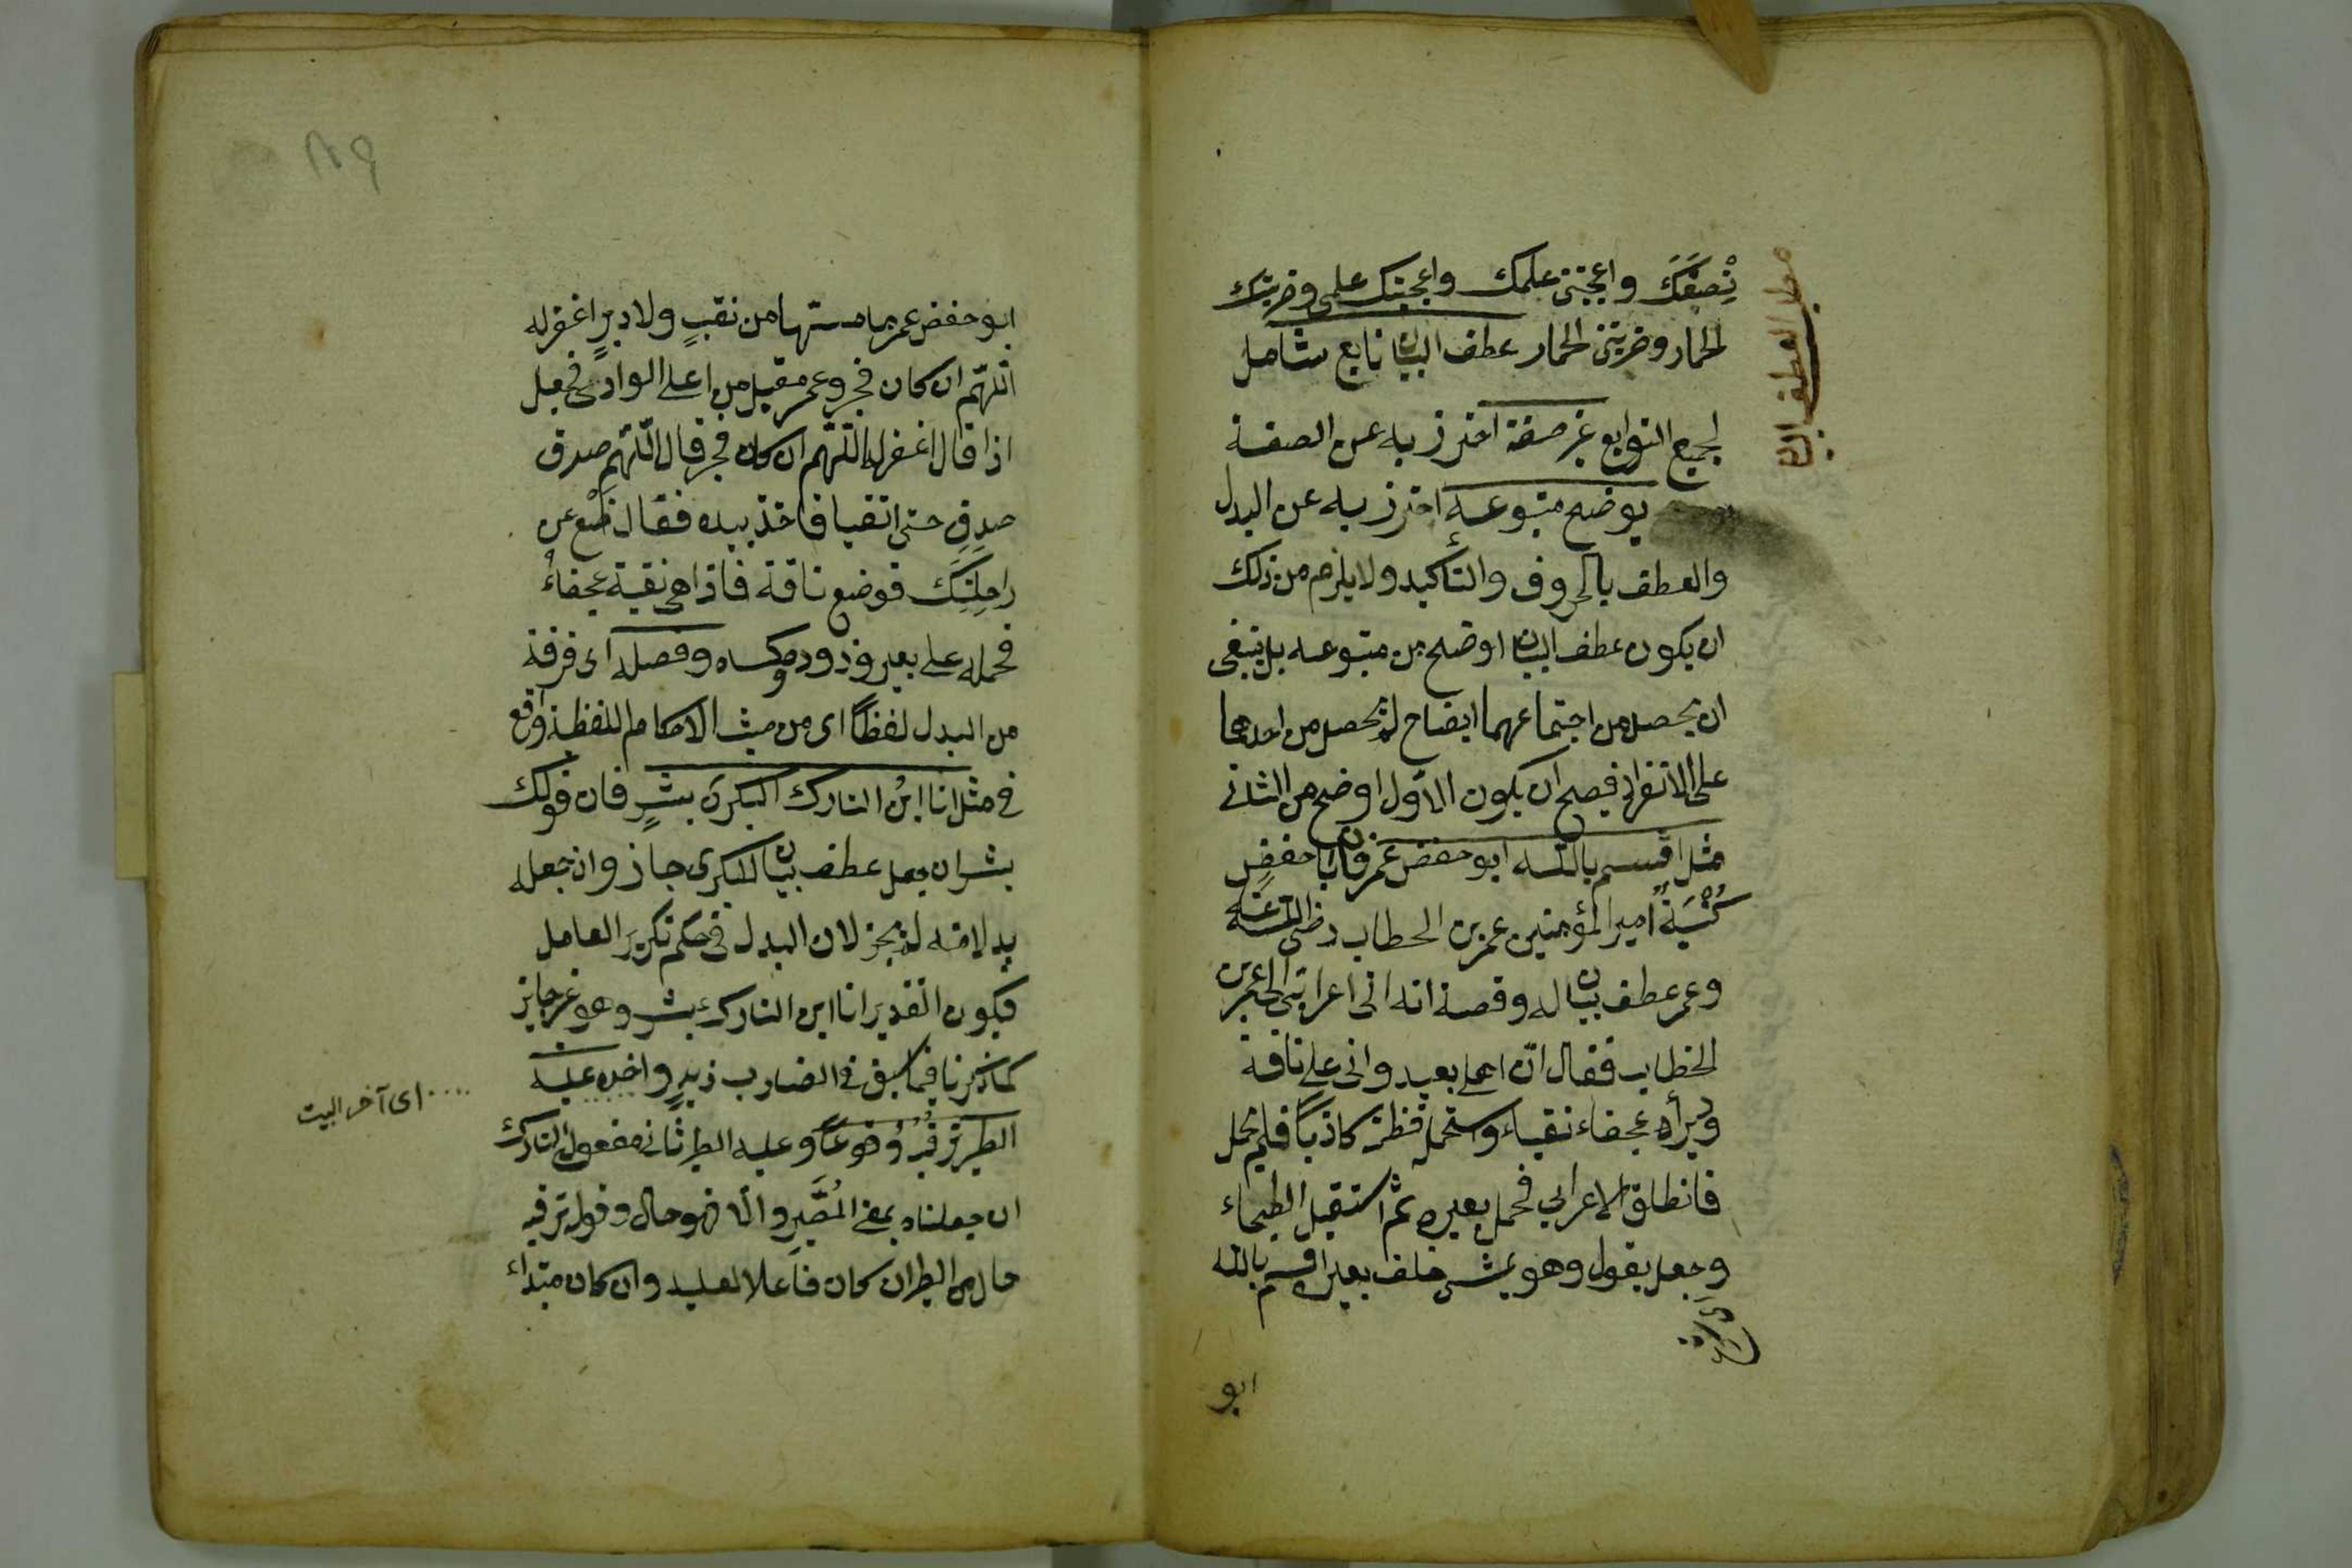 نِصْفَكَ واعجبنى علمك واعجبتك علمى وضربتك
الحمار وضربتنى الحمار عطف البيان تابع شامل
لجميع التوابع غير صفة احترز به عن الصفة
يوضح متبوعه احترز به عن البدل
والعطف بالحروف والتأكيد ولا يلزم من ذلك
ان يكون عطف البيان اوضح من متبوعه بل ينبغى
ان يحصل من اجتماعهما ايضاح لم يحصل من احدهما
على الانفراد فيصح ان يكون الاول اوضح من الثانى
مثل اقسم بالله ابو حفص عمر فان ابا حفص
كُنْيَةٌ امير المؤمنين عمر بن الخطاب رضى الله عنه
وعمر عطف بيان له وقصة انه اتى اعرابى الى عمر بن
الخطاب فقال ان اهلى بعيد وانى على ناقة
دبراء عجفاء نقباء واستحمله فظنه كاذبًا فلم يحمل
فانطلق الاعرابي فحمل بعيره ثم استقبل البطحاء
وجعل يقول وهو يمشى خلف بعيره اقسم بالله
ابو
مطلب العطف البيان
ابو حفص عمر ما مستها من نقبٍ ولا دبرٍ اغفر له
اللّهم ان كان فجر وعمر مقبل من اعلى الوادى فجعل
اذا قال اغفر له اللّهم ان كان فجر قال اللّهم صدق
صدق حتى التقيا فاخذ بيده فقال ضَعْ عن
راحِلَتِكَ فوضع ناقة فاذا هى نقبة عجفاءُ
فحمله على بعير وزوده وكساه وفصله اى فرقه
من البدل لفظًا اى من حيث الاحكام اللفظية واقع
فى مثل انا ابنُ التارك البكرى بشرٍ فان قولك
بشر ان جعل عطف بيان للبكرى جاز وان جعله
بدلا منه لم يجز لان البدل فى حكم تكرير العامل
فيكون التقدير انا ابن التارك بشر وهو غير جايز
كما ذكرنا فيما سبق فى الضارب زيدٍ واخره عليه
الطير ترقبُهُ وُقوعًا وعليه الطير ثانى مفعولى التارك
ان جعلناه بمعنى المُصَيّر والّا فهو حال وقوله ترقبه
حال من الطير ان كان فاعلا لعليه وان كان مبتداء
اى آخر البيت